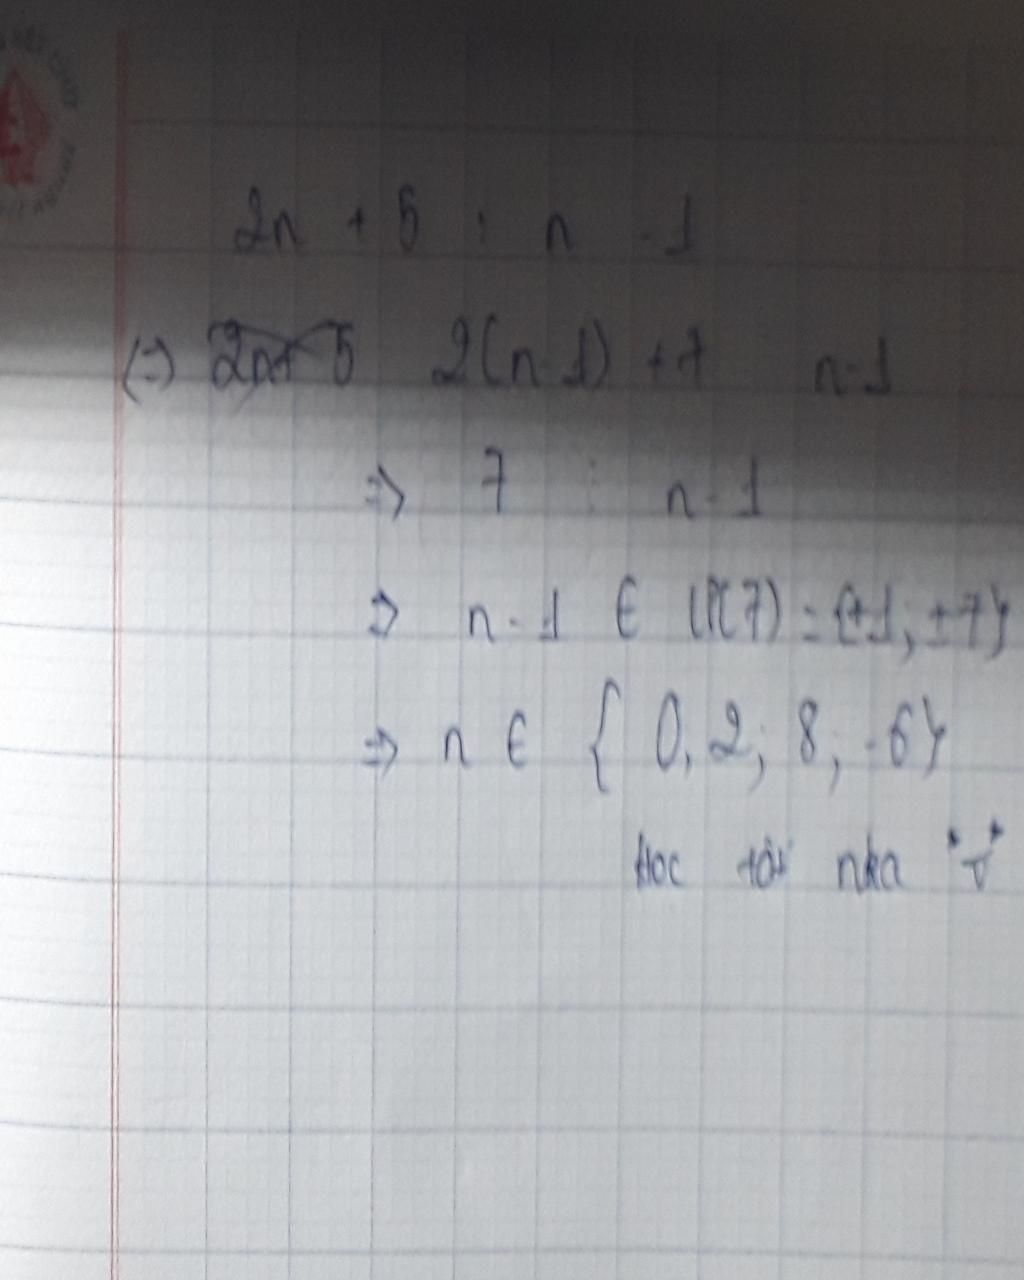 2n + 5 ⋮ n - 1
(=) 2n+ 5 2(n-1) +7 n-1
=> 7 ⋮ n - 1
=> n - 1 ∈ Ư(7) = {±1; ±7}
=> n ∈ { 0, 2; 8; -6}
Học tốt nha